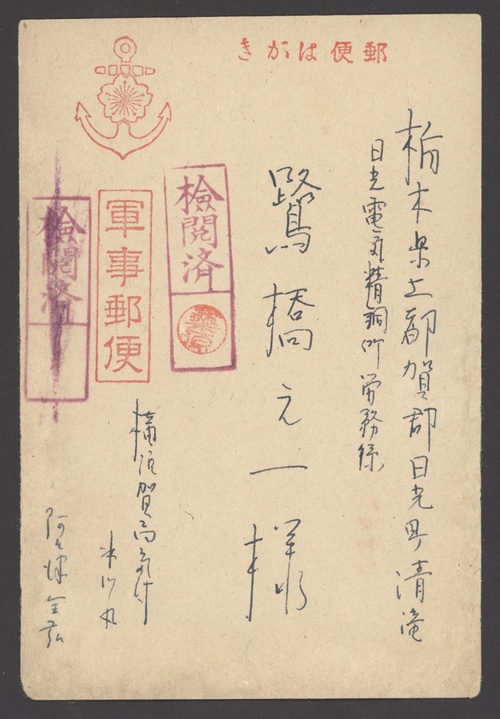 きがは便郵
栃木県上都賀郡日光町清滝
日光電気精銅所労務係
鷺橋元一様
検閲済
軍事郵便
検閲済
横須賀局気付
氷川丸